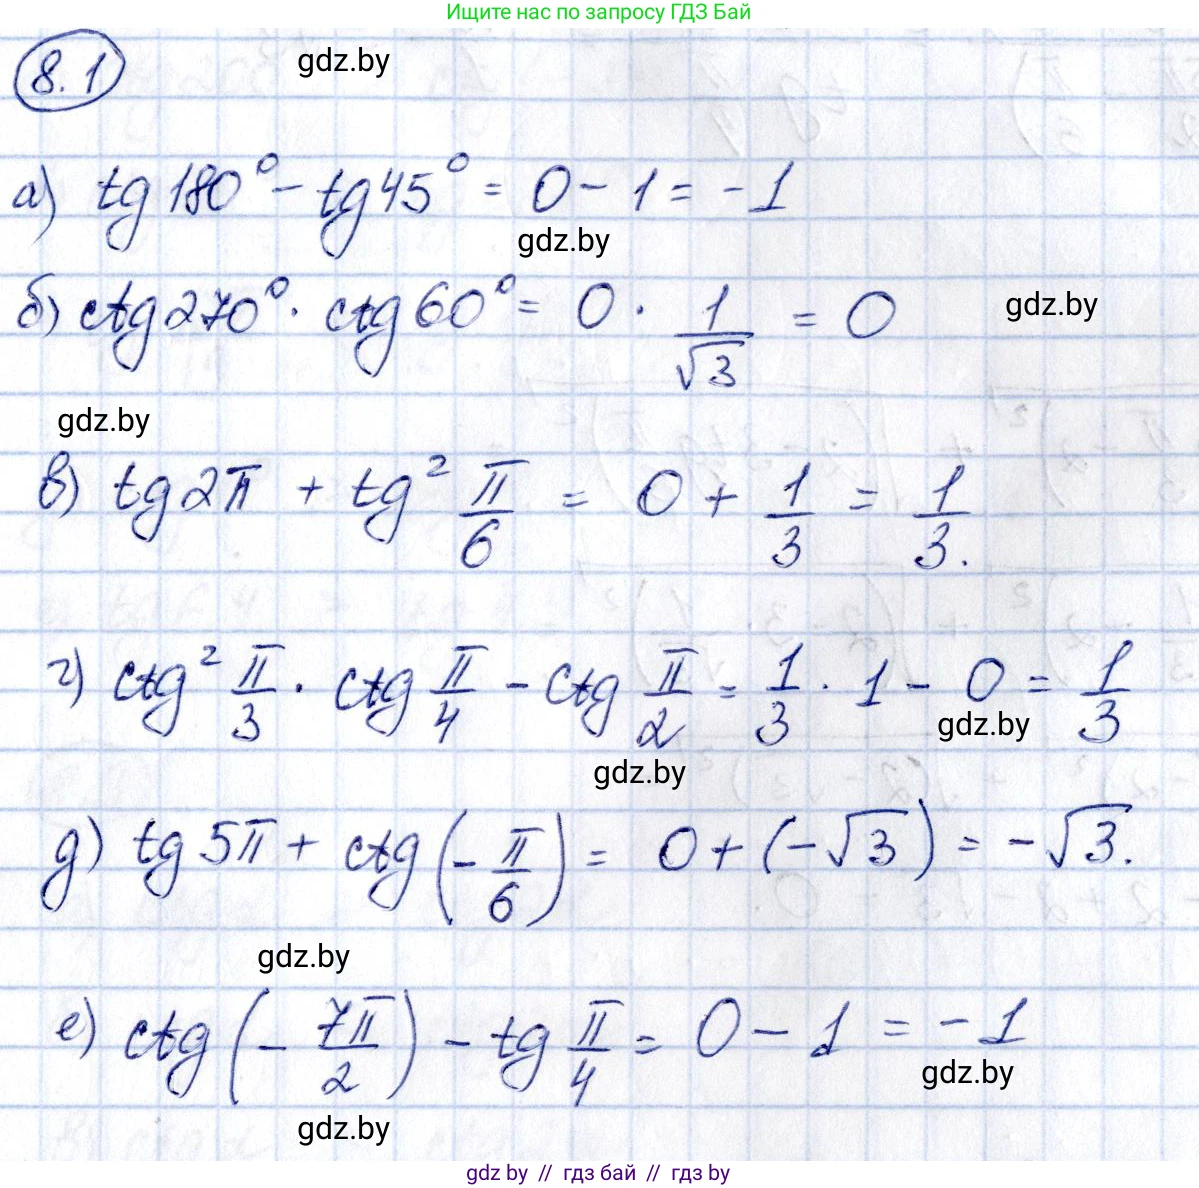 Ищите нас по запросу ГДЗ Бай
8.1
gdz.by
а) tg180° - tg45° = 0 - 1 = -1
gdz.by
б) ctg270° · ctg60° = 0 · 1/√3 = 0
gdz.by
gdz.by
в) tg2π + tg² π/6 = 0 + 1/3 = 1/3.
г) ctg² π/3 · ctg π/4 - ctg π/2 = 1/3 · 1 - 0 = 1/3
gdz.by
gdz.by
д) tg5π + ctg(-π/6) = 0 + (-√3) = -√3.
gdz.by
е) ctg(-7π/2) - tg π/4 = 0 - 1 = -1
gdz.by
gdz.by
gdz by // гдз бай // гдз by